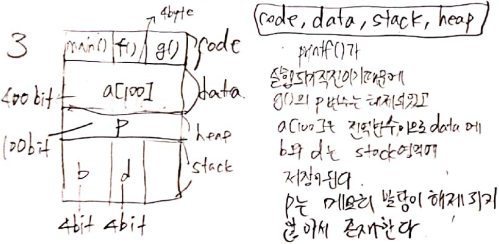 3
4byte
main() f() g() code
400bit a[100] data
100bit p heap
b d stack
4bit 4bit
code, data, stack, heap
printf()가
실행되기직전이기때문에
g()의 p변수는 해제되었고
a[100]는 전역변수이므로 data에
b와 d는 stack영역에
저장이된다.
p는 메모리 할당이 해제되지
않아서 존재한다.